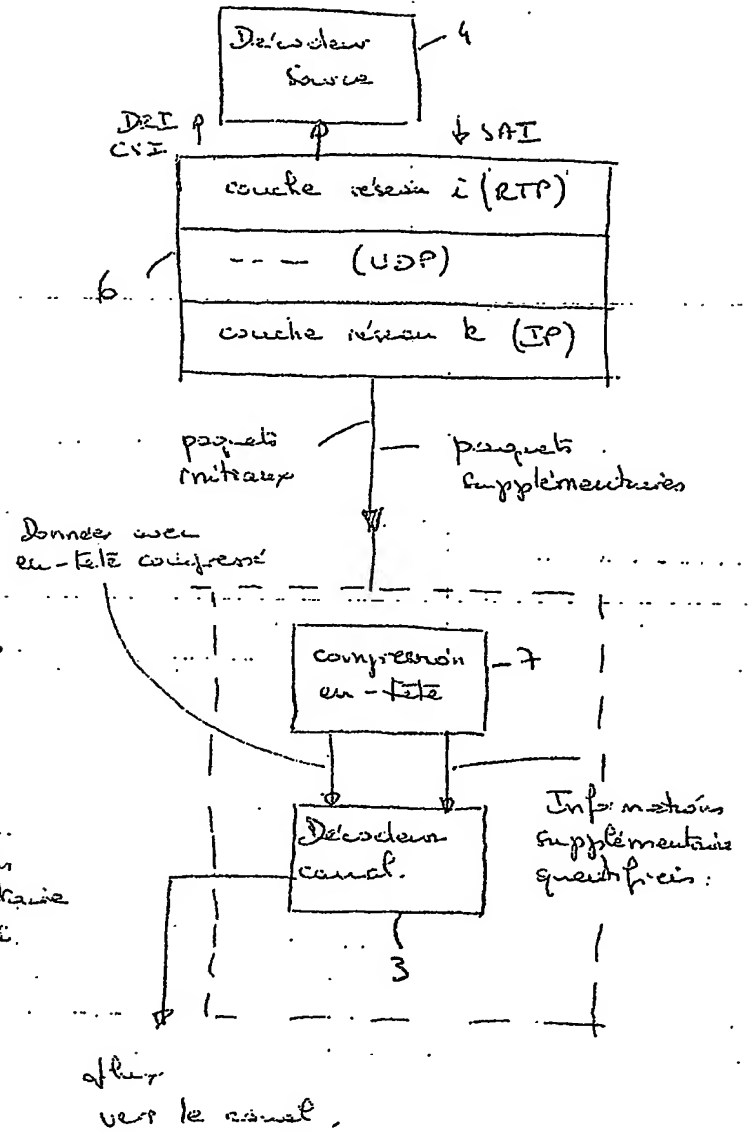 Décodeur
Source
4
DRI
CSI
SAI
couche réseau i (RTP)
--- (UDP)
6
couche réseau k (IP)
paquets
initiaux
paquets
supplémentaires
Données avec
en-tête compressé
compression
en-tête
7
Informations
supplémentaire
quantifiées :
Décodeur
canal.
3
flux
vers le canal,